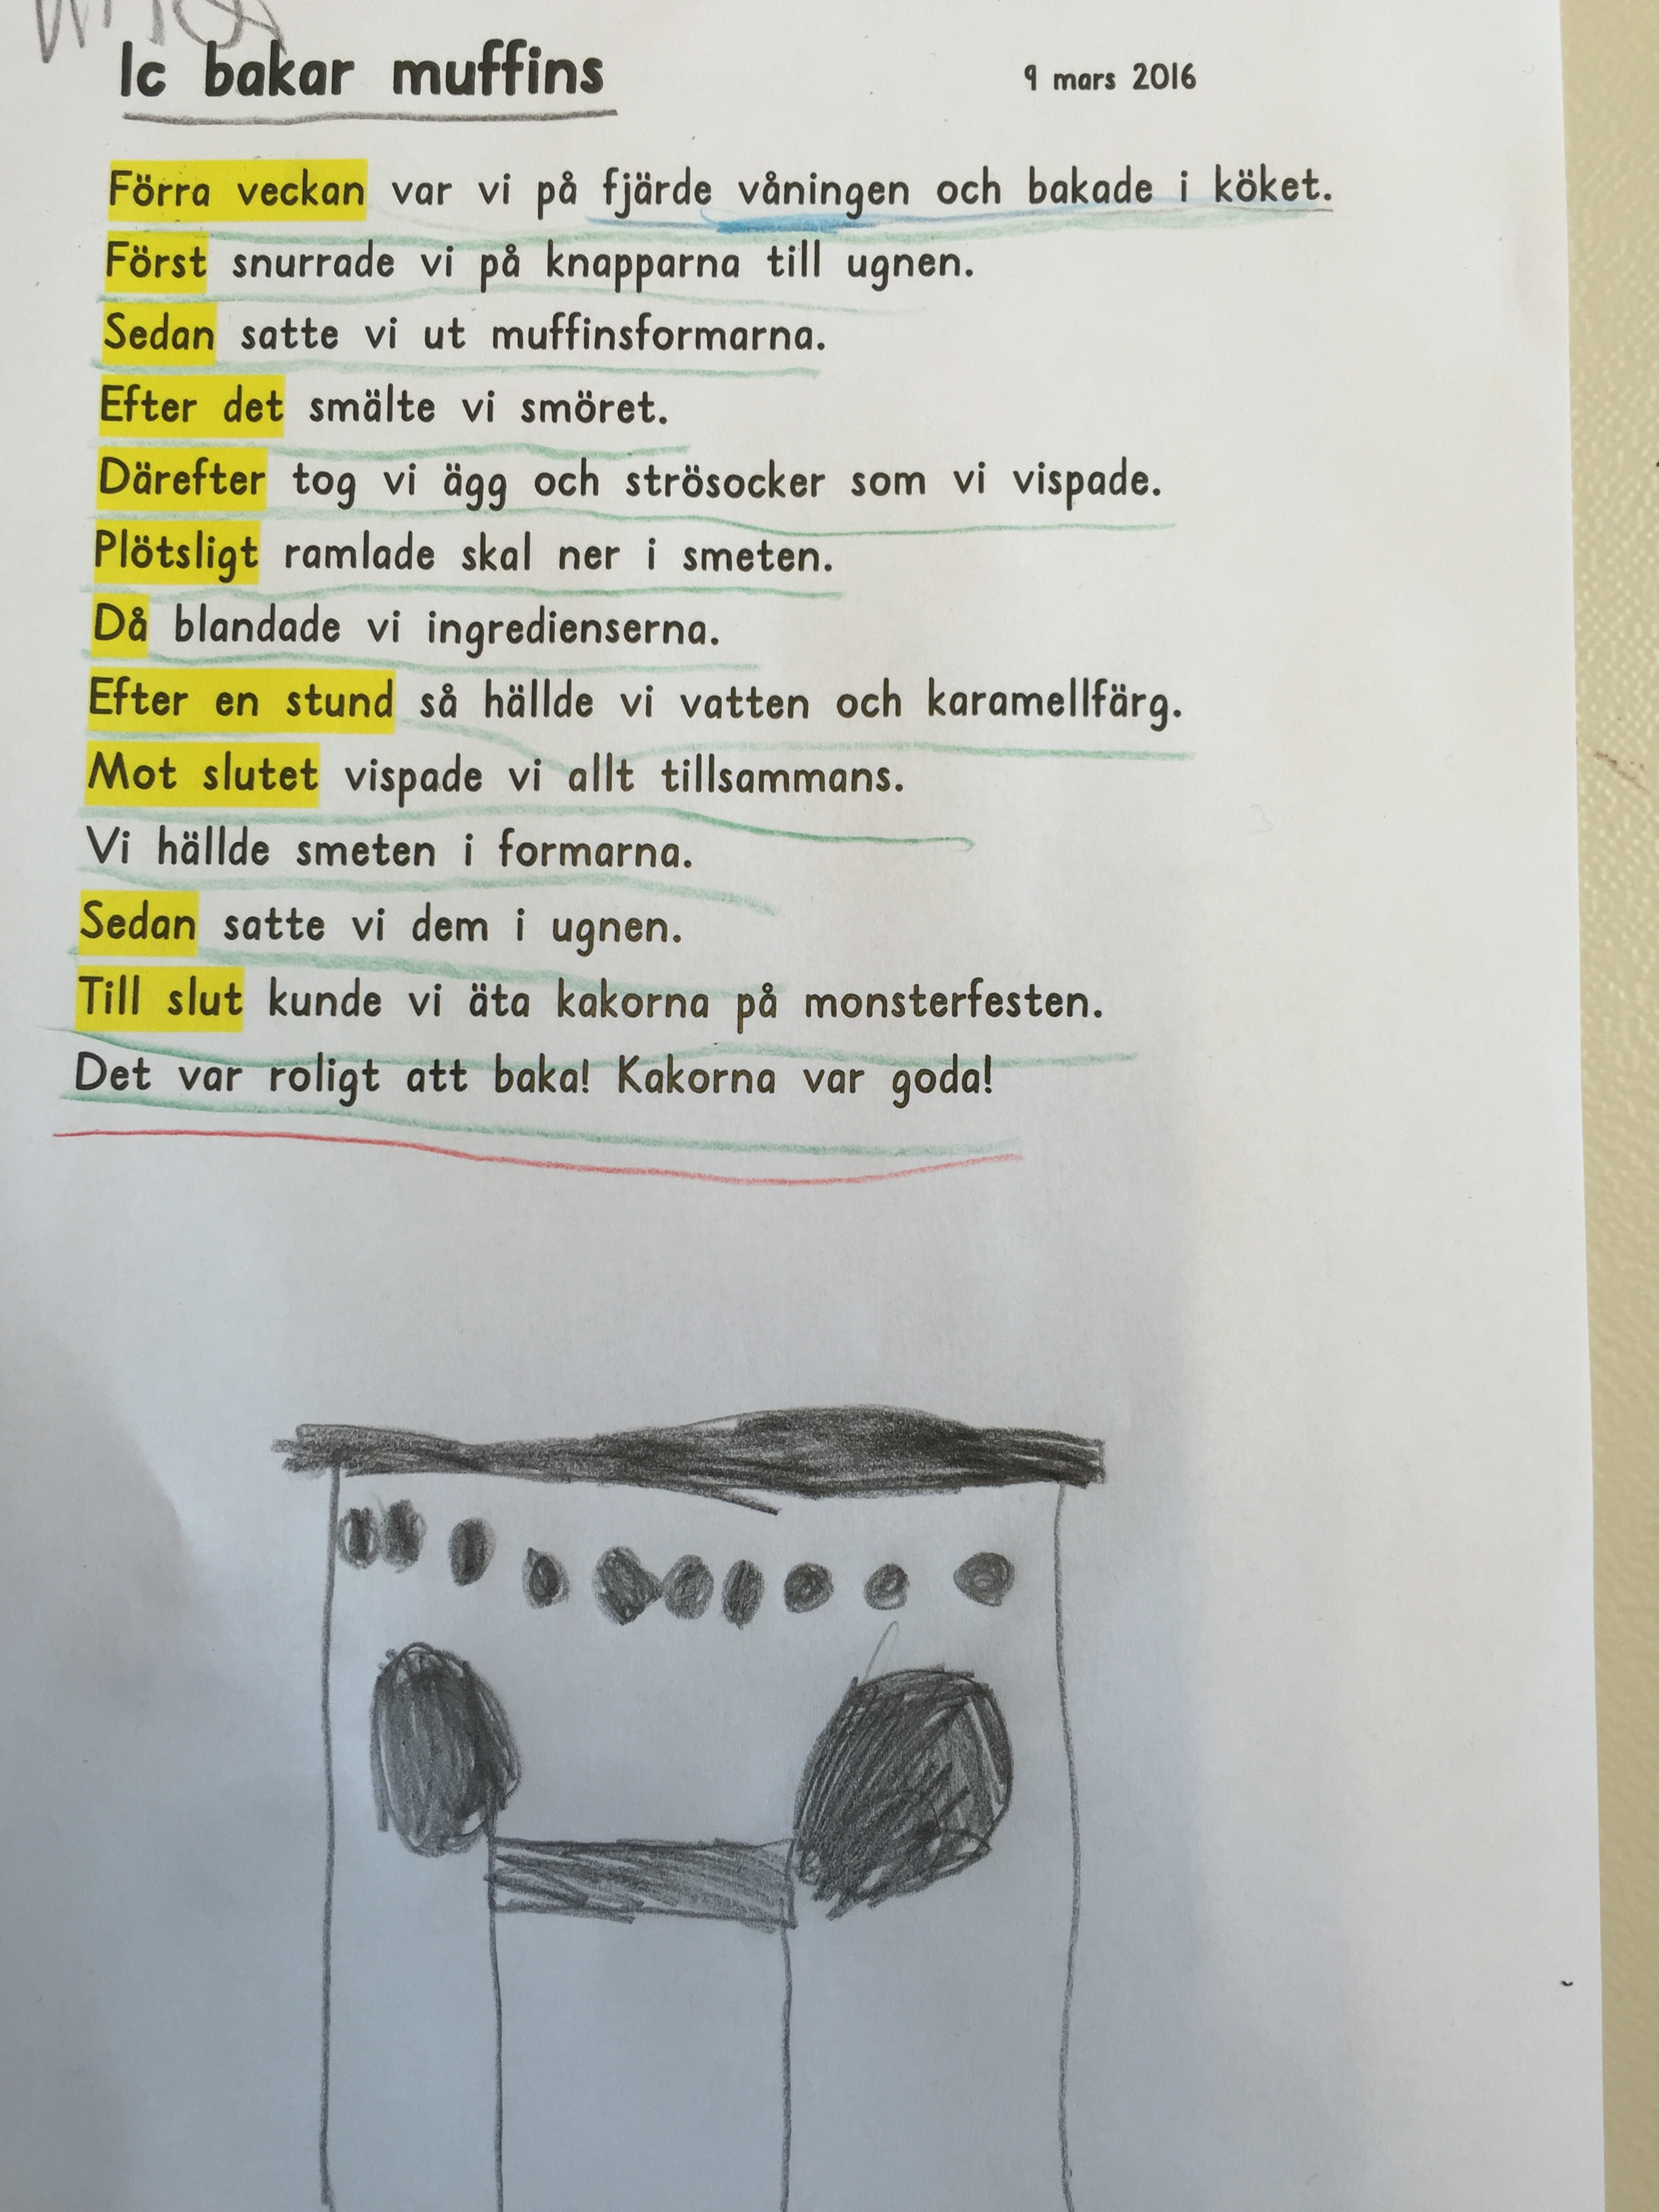 1c bakar muffins
9 mars 2016
Förra veckan var vi på fjärde våningen och bakade i köket.
Först snurrade vi på knapparna till ugnen.
Sedan satte vi ut muffinsformarna.
Efter det smälte vi smöret.
Därefter tog vi ägg och strösocker som vi vispade.
Plötsligt ramlade skal ner i smeten.
Då blandade vi ingredienserna.
Efter en stund så hällde vi vatten och karamellfärg.
Mot slutet vispade vi allt tillsammans.
Vi hällde smeten i formarna.
Sedan satte vi dem i ugnen.
Till slut kunde vi äta kakorna på monsterfesten.
Det var roligt att baka! Kakorna var goda!